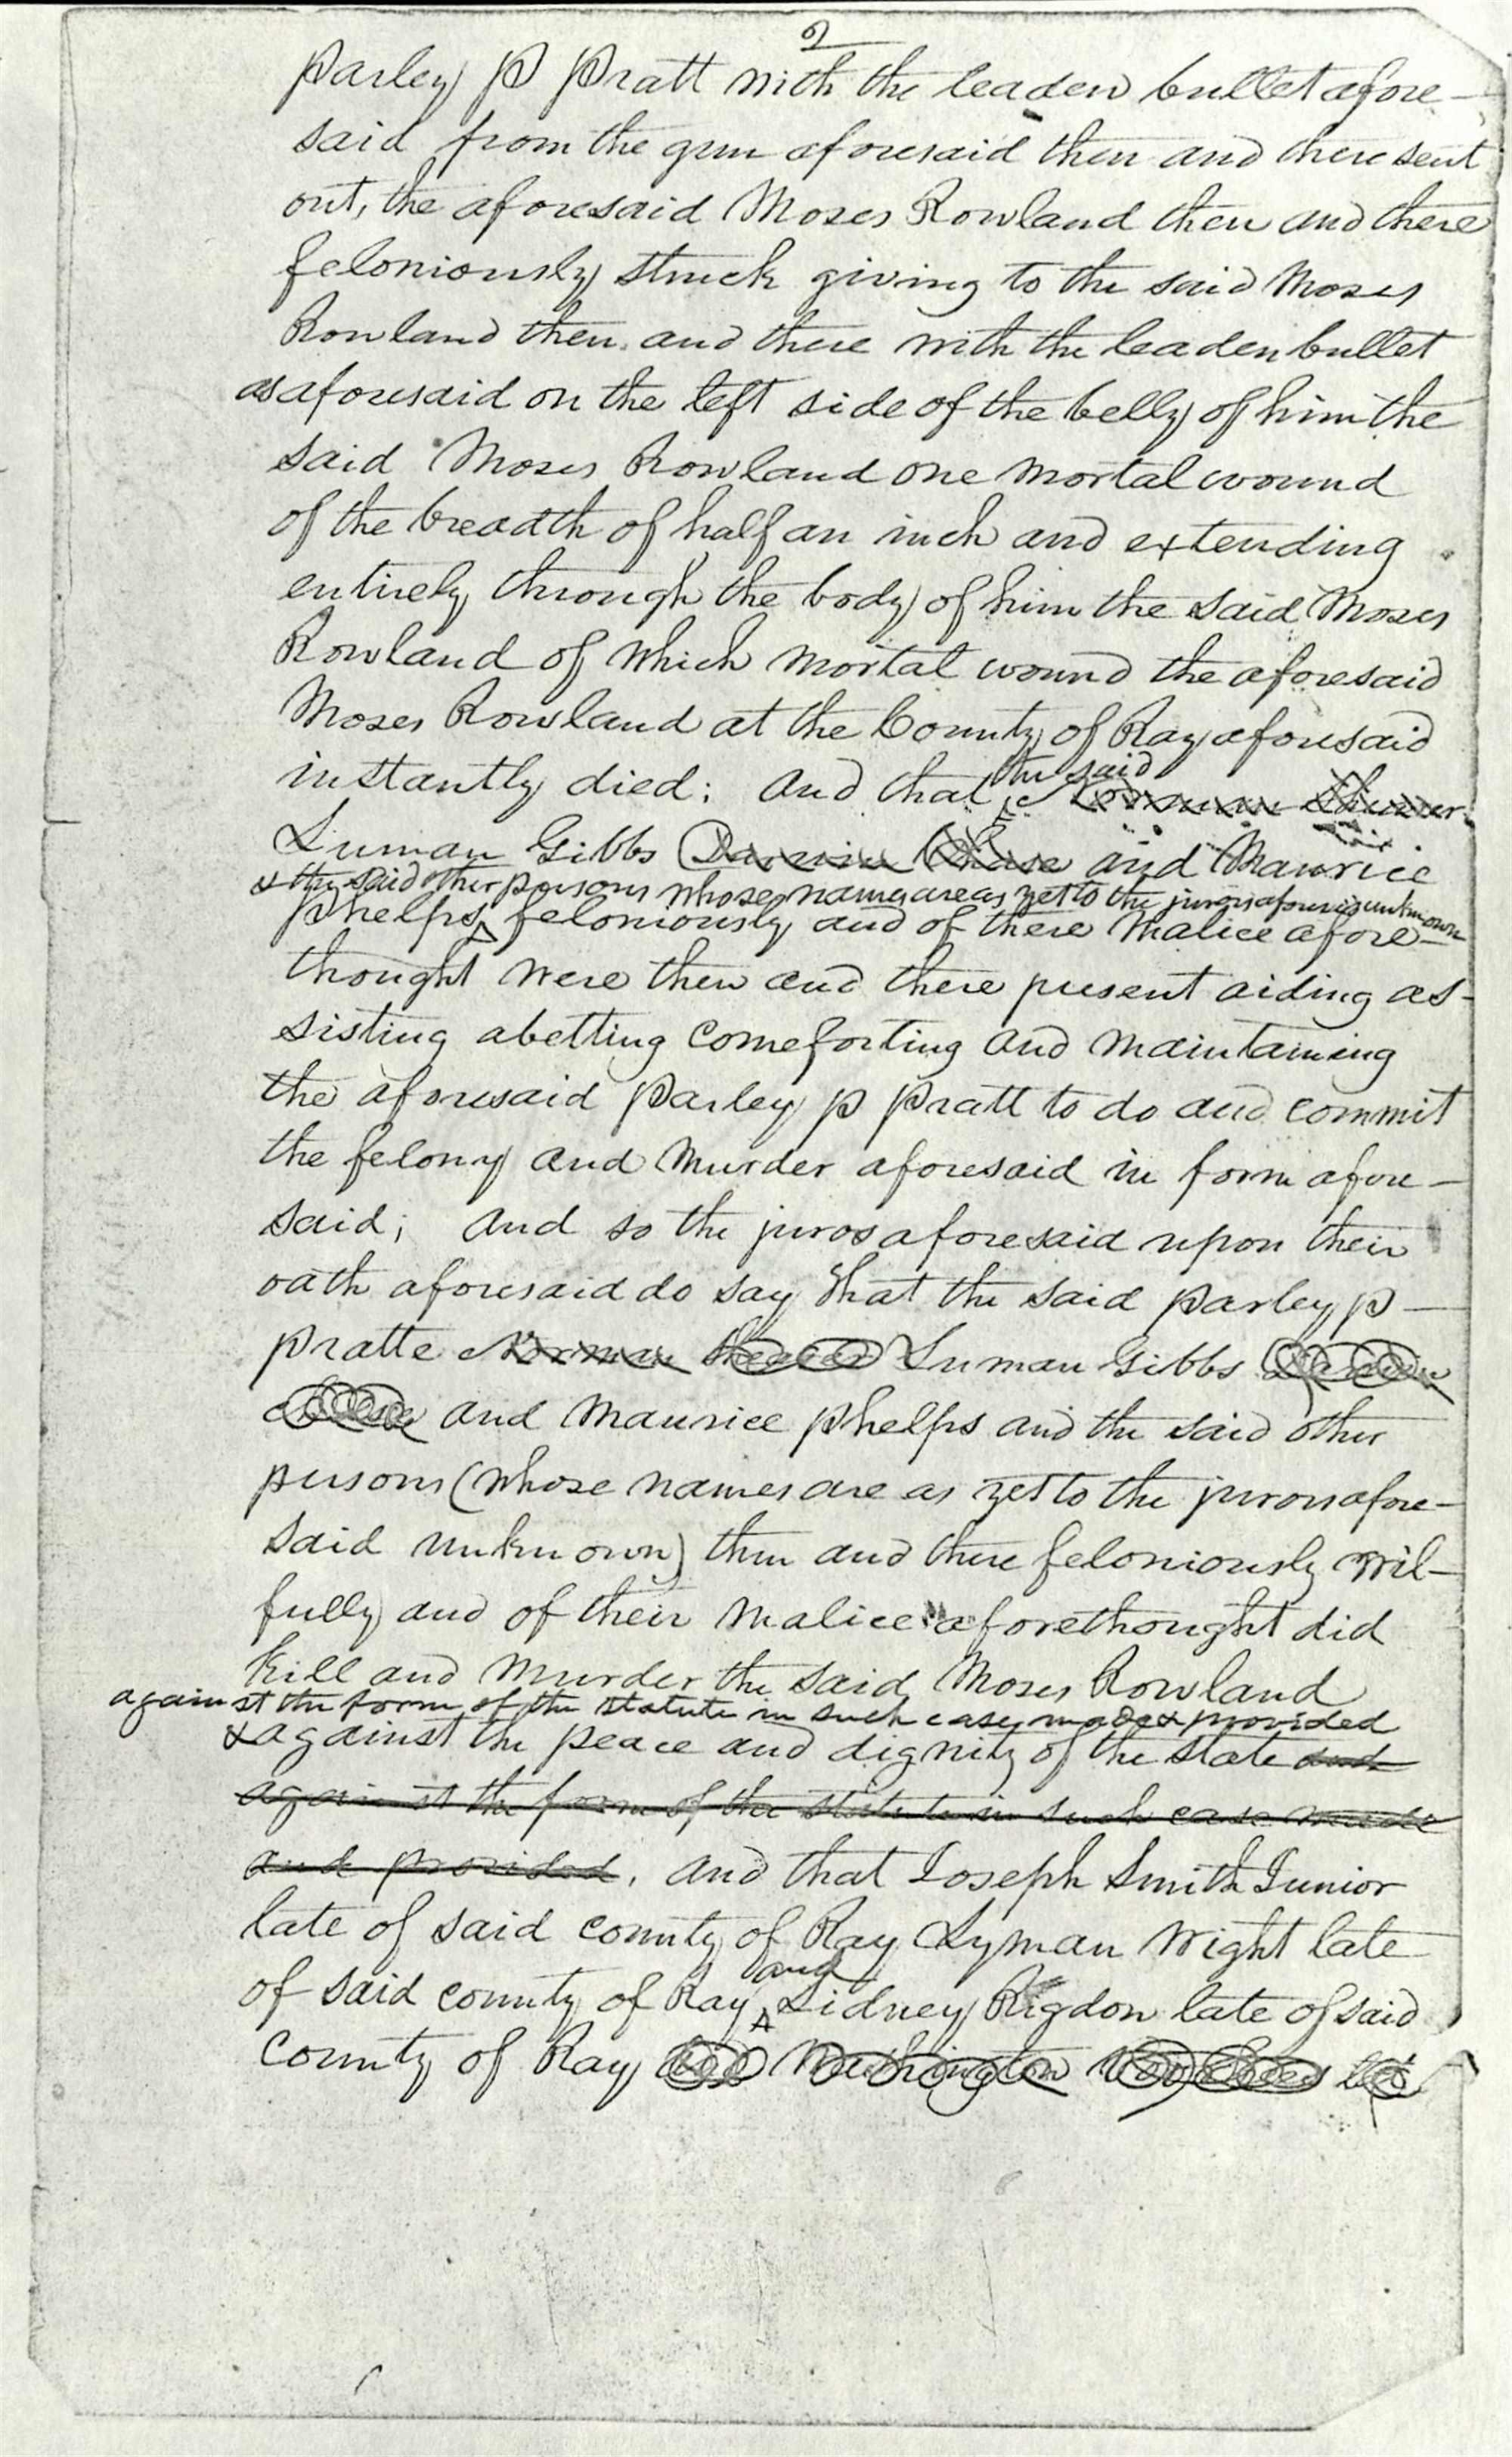 2
Parley P Pratt with the leaden bullet afore-
said from the gun aforesaid then and there sent
out, the aforesaid Moses Rowland then and there
feloniously struck giving to the said Moses
Rowland then and there with the leaden bullet
as aforesaid on the left side of the belly of him the
said Moses Rowland one mortal wound
of the breadth of half an inch and extending
entirely through the body of him the said Moses
Rowland of which mortal wound the aforesaid
Moses Rowland at the County of Ray aforesaid
the said
instantly died; and that Norman Shearer
Luman Gibbs Darwin Chase and Maurice
& the said other persons whose names are as yet to the jurors aforesaid unknown
Phelps feloniously and of there malice afore-
thought were then and there present aiding as-
sisting abetting comeforting and maintaining
the aforesaid Parley P Pratt to do and commit
the felony and murder aforesaid in form afore-
said; and so the juros aforesaid upon their
oath aforesaid do say that the said Parley P-
Pratte Norman Shearer Luman Gibbs Darwin
Chase and Maurice Phelps and the said other
persons (whose names are as yet to the jurors afore-
said unknown) then and there feloniously wil-
fully and of their malice aforethought did
kill and murder the said Moses Rowland
against the form of the statute in such case made & provided
& against the peace and dignity of the state and
against the form of the statute in such case made
and provided. and that Joseph Smith Junior
late of said county of Ray Lyman Wight late
and
of said county of Ray Sidney Rigdon late of said
county of Ray and Washington Voorhees late